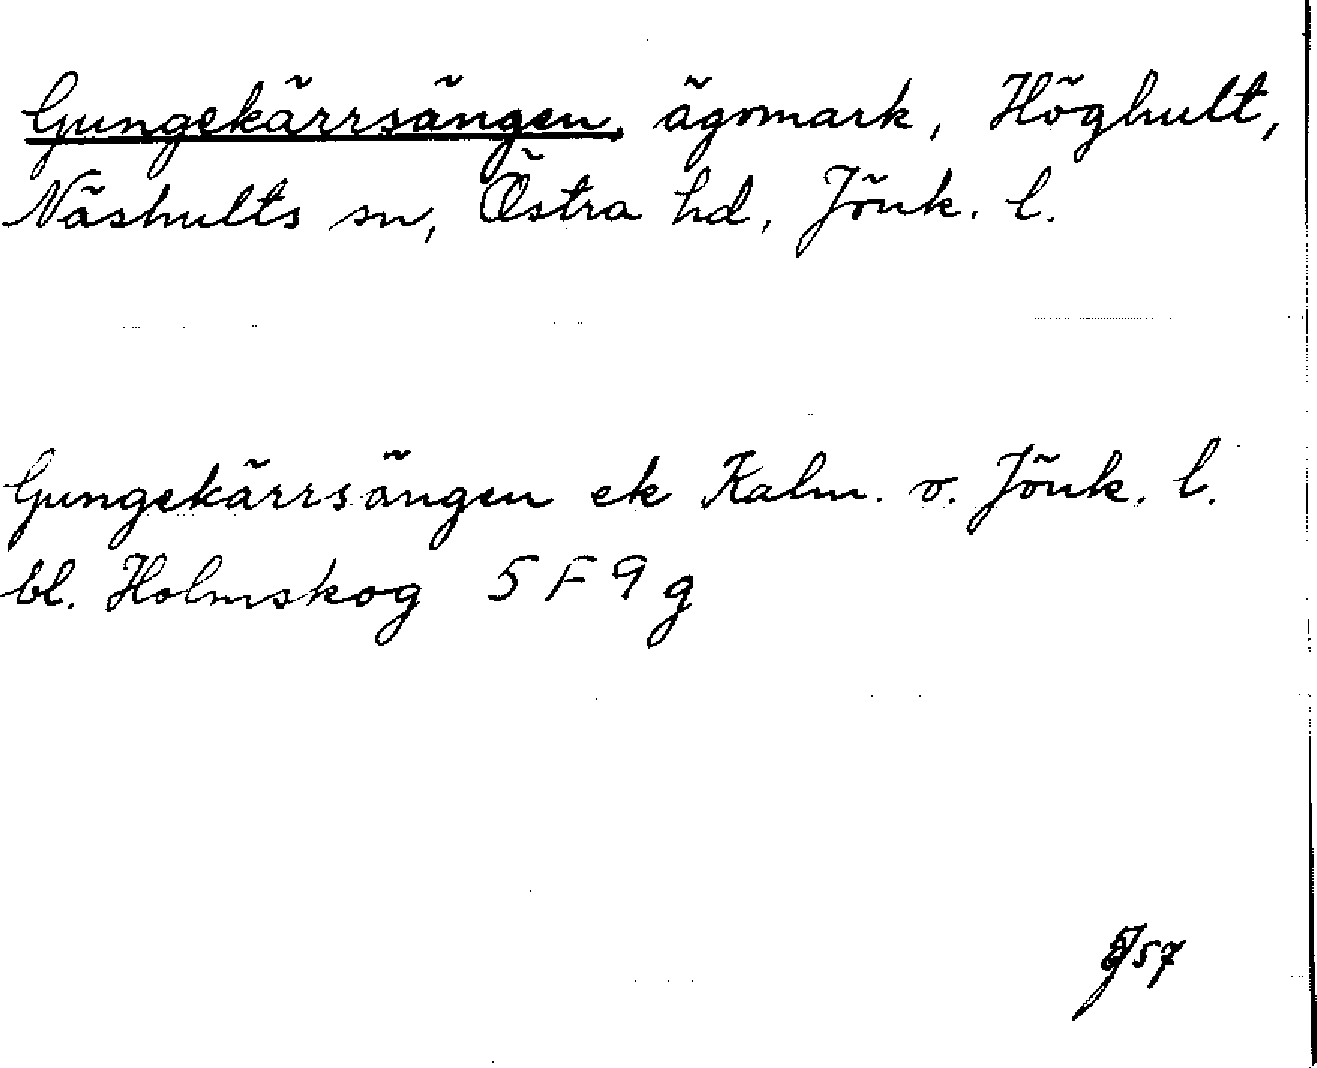 Gungekärrsängen, ägomark, Höghult,
Näshults sn, Östra hd, Jönk. l.
Gungekärrsängen ek Kalm. o. Jönk. l.
bl. Holmskog 5 F 9 g